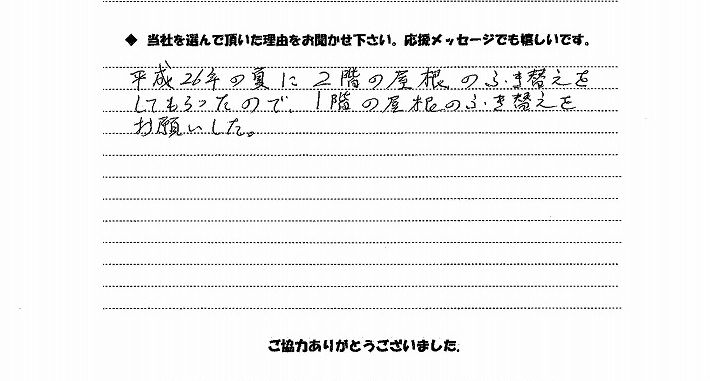 ◆ 当社を選んで頂いた理由をお聞かせ下さい。応援メッセージでも嬉しいです。
平成26年の夏に2階の屋根のふき替えを
してもらったので、1階の屋根のふき替えを
お願いした。
ご協力ありがとうございました。